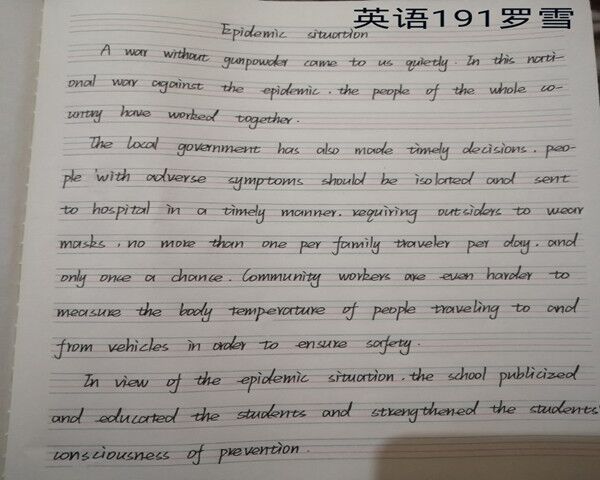 英语191罗雪
Epidemic situation
A war without gunpowder came to us quietly. In this nati-
onal war against the epidemic, the people of the whole co-
untry have worked together.
The local government has also made timely decisions, peo-
ple with adverse symptoms should be isolated and sent
to hospital in a timely manner, requiring outsiders to wear
masks, no more than one per family traveler per day, and
only once a chance. Community workers are even harder to
measure the body temperature of people traveling to and
from vehicles in order to ensure safety.
In view of the epidemic situation, the school publicized
and educated the students and strengthened the students'
consciousness of prevention.